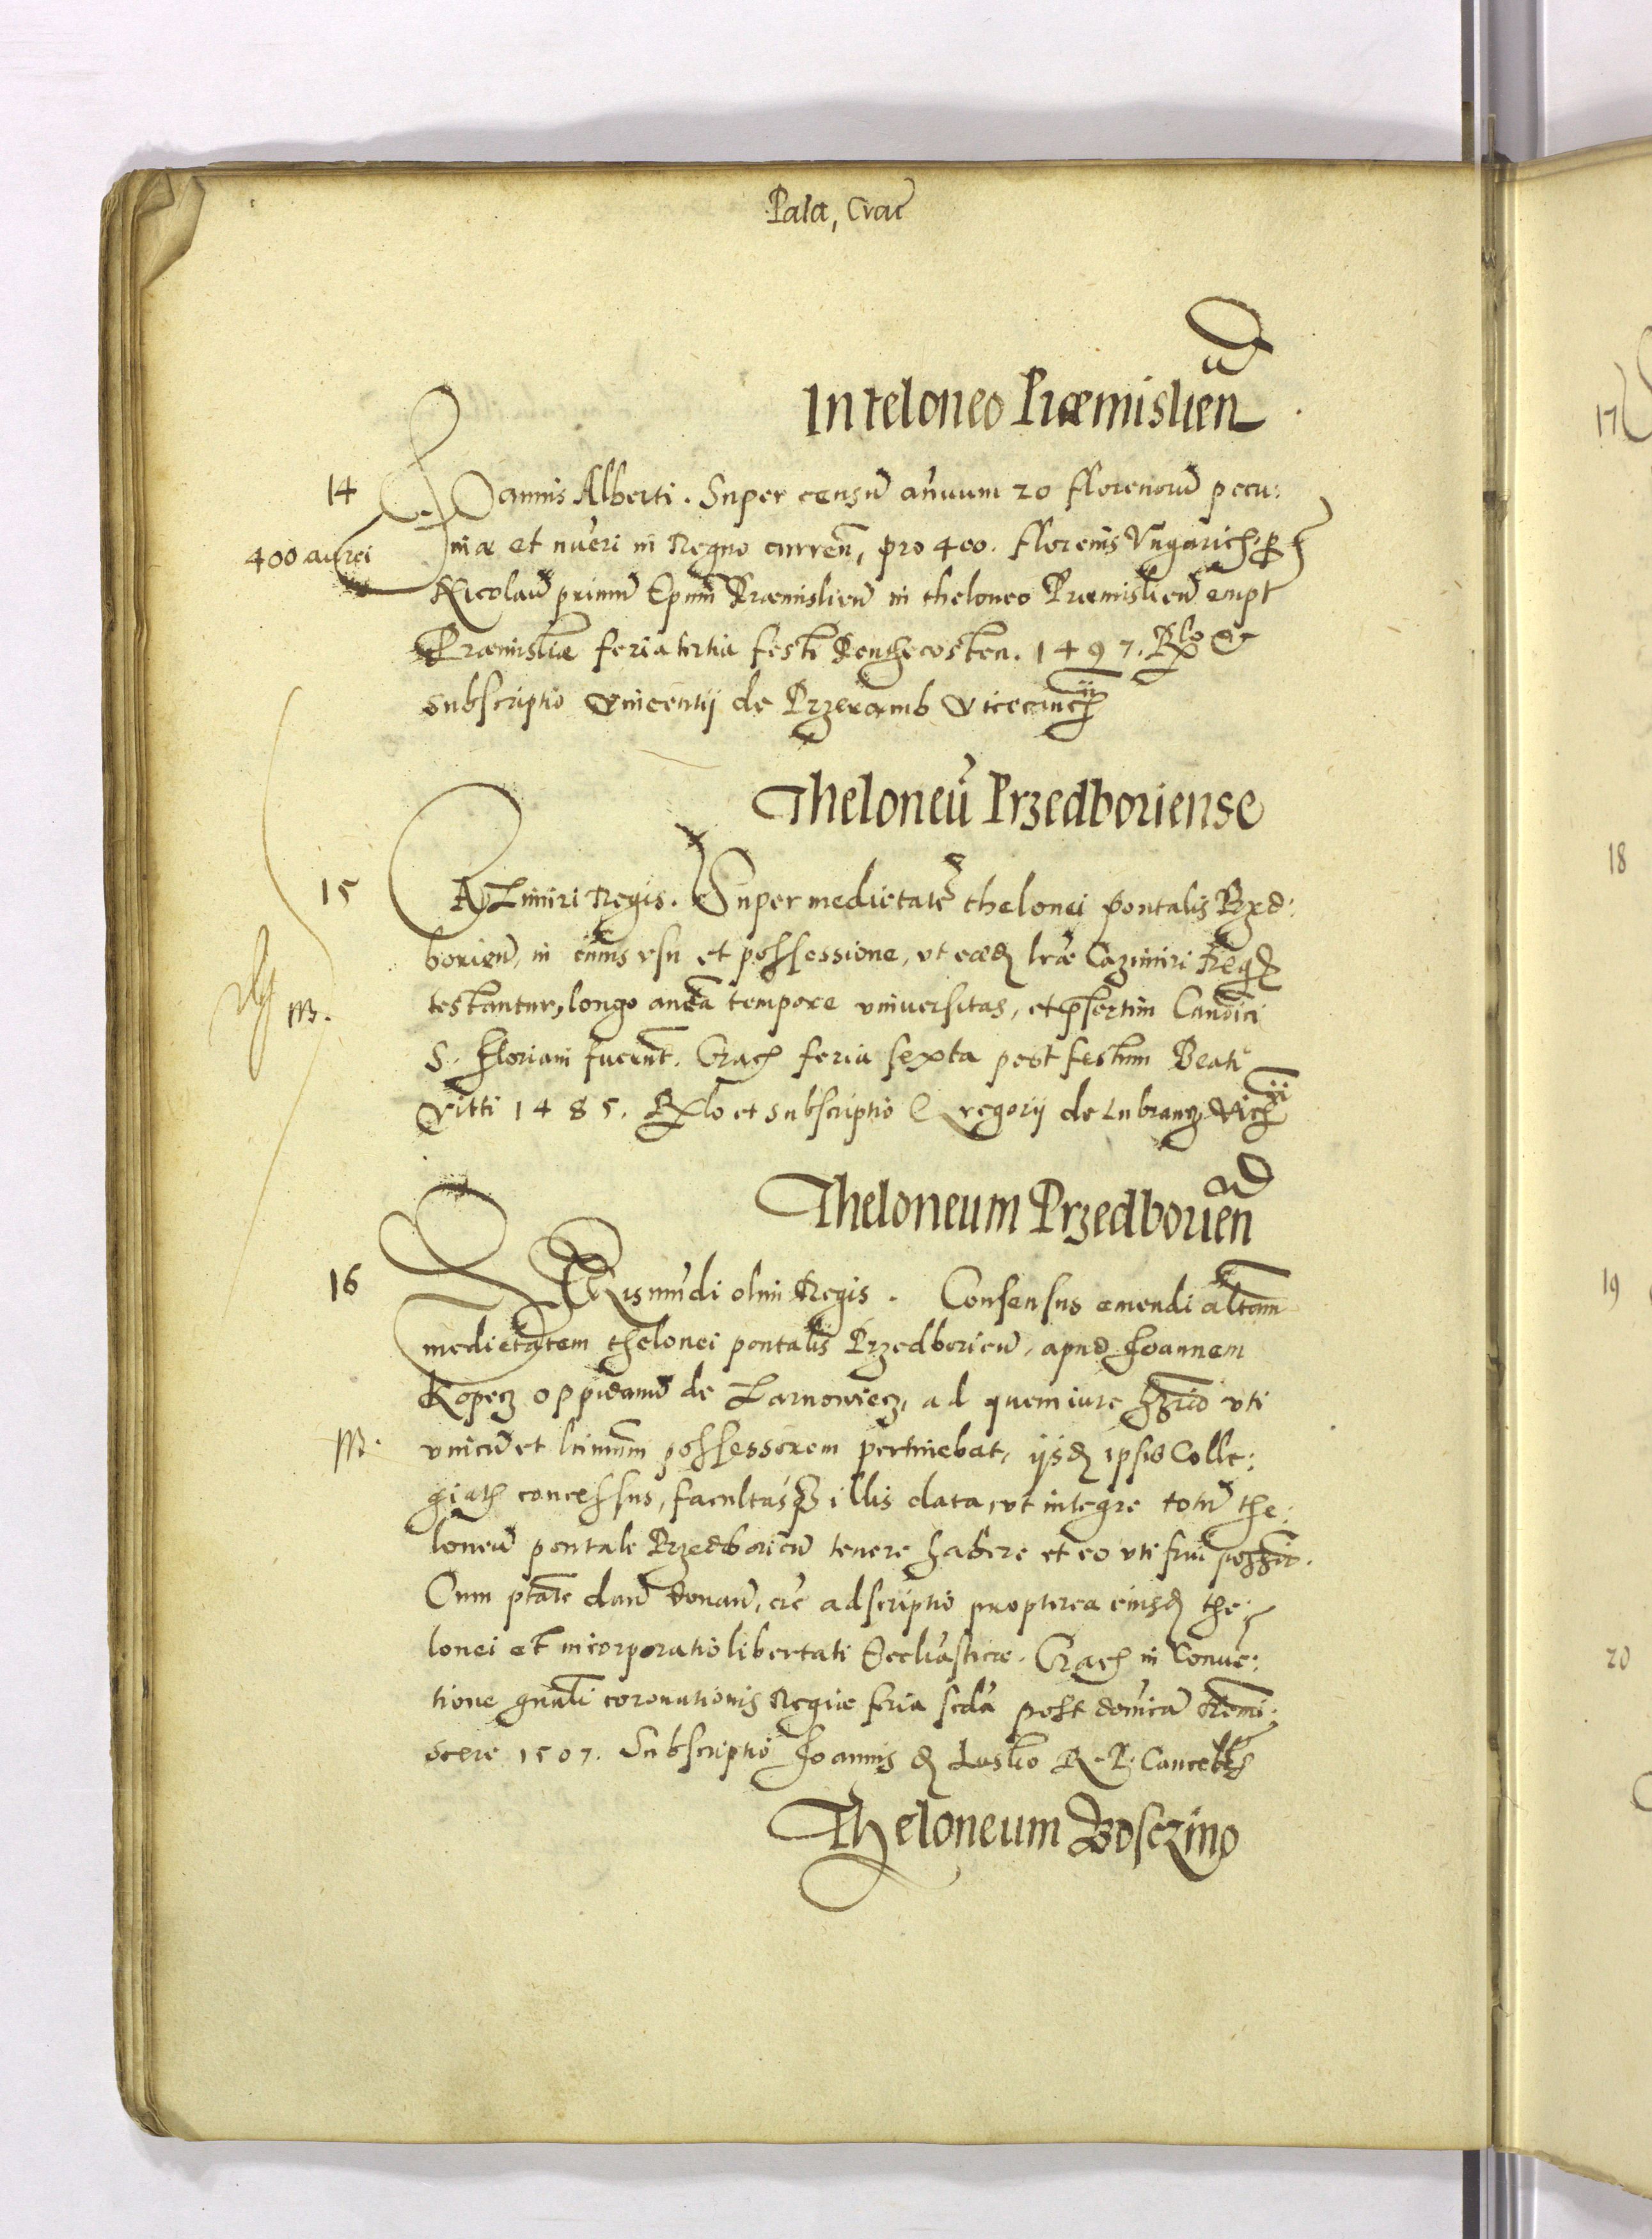 Pala, Crac
In teloneo Præmislien
14 Joannis Alberti. Super censũ añuum 20 florenorũ pecu:
400 aurei
niæ et nũeri in Regno curreñ, pro 400. florenis Vngarich, per
Nicolaũ primũ Epum Præmislieñ in theloneo Præmislieñ empt
Præmisliæ feria tertia festi Penthecosten. 1497. Rlo et
subscriptio Vincentij de Przeramb Vicecanch
Theloneũ Przedboriense
15 CAZimiri Regis. Super medietatẽ thelonei pontalis Przed:
borieñ, in cuius vsu et possessione, vt eædẽ lræ Cazimiri Regis
testantur, longo antea tempore vniuersitas, et prsertim Canonici
m.
S. Floriani fuerunt. Crac feria sexta post festum Beati
Vitti 1485. Rlo et subscriptio Gregorij de Lubrancz Vich
Theloneum Przedborien
16 SIGismũdi olim Regis. Consensus emendi alteram
medietatem thelonei pontalis Przedborieñ, apud Joannem
Kopecz oppidanũ de Tarnowiecz, ad quem iure hærrio vti
m. vnicũ et ltimum possessorem pertinebat, ijsdẽ ipsis Colle:
giath concessus, facultasq illis data, vt integre totũ the:
loneũ pontale Przedborieñ tenere habere et eo vti frui possint.
Cum ptate dandi donandi, etc adscriptio propterea eiusdẽ the:
lonei et incorporatio libertati Ecclesiasticæ. Crac in Conue:
tione gnali coronationis Regiæ feria scda post domicã Remi:
scere 1507. Subscriptio Joannis de Lasko R. P. Cancell
Theloneum Bosczino
17
18
19
20